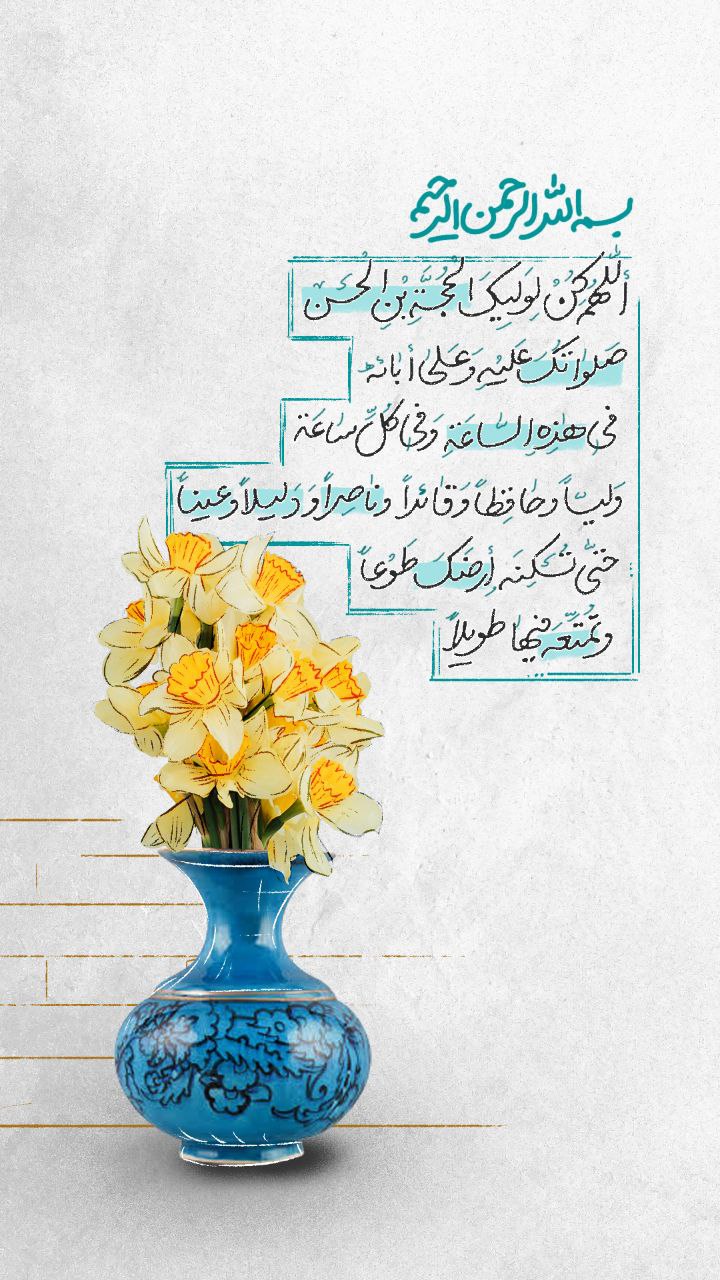 بسم الله الرحمن الرحیم
أَللّٰهُمَّ كُنْ لِوَلِيِكَ الْحُجَّةِ بْنِ الْحَسَن
صَلَواتُكَ عَلَيْهِ وَعَلىٰ أبائه
في هٰذِهِ السّاعَةِ وَفي كُلِّ ساعَة
وَلياً وحافِظاً وَقائداً وناصِراً وَ دَليلاً وعيناً
حتىٰ تُسْكِنَه أرضَكَ طَوْعاً
وتُمَتِّعَهُ فيها طويلاً